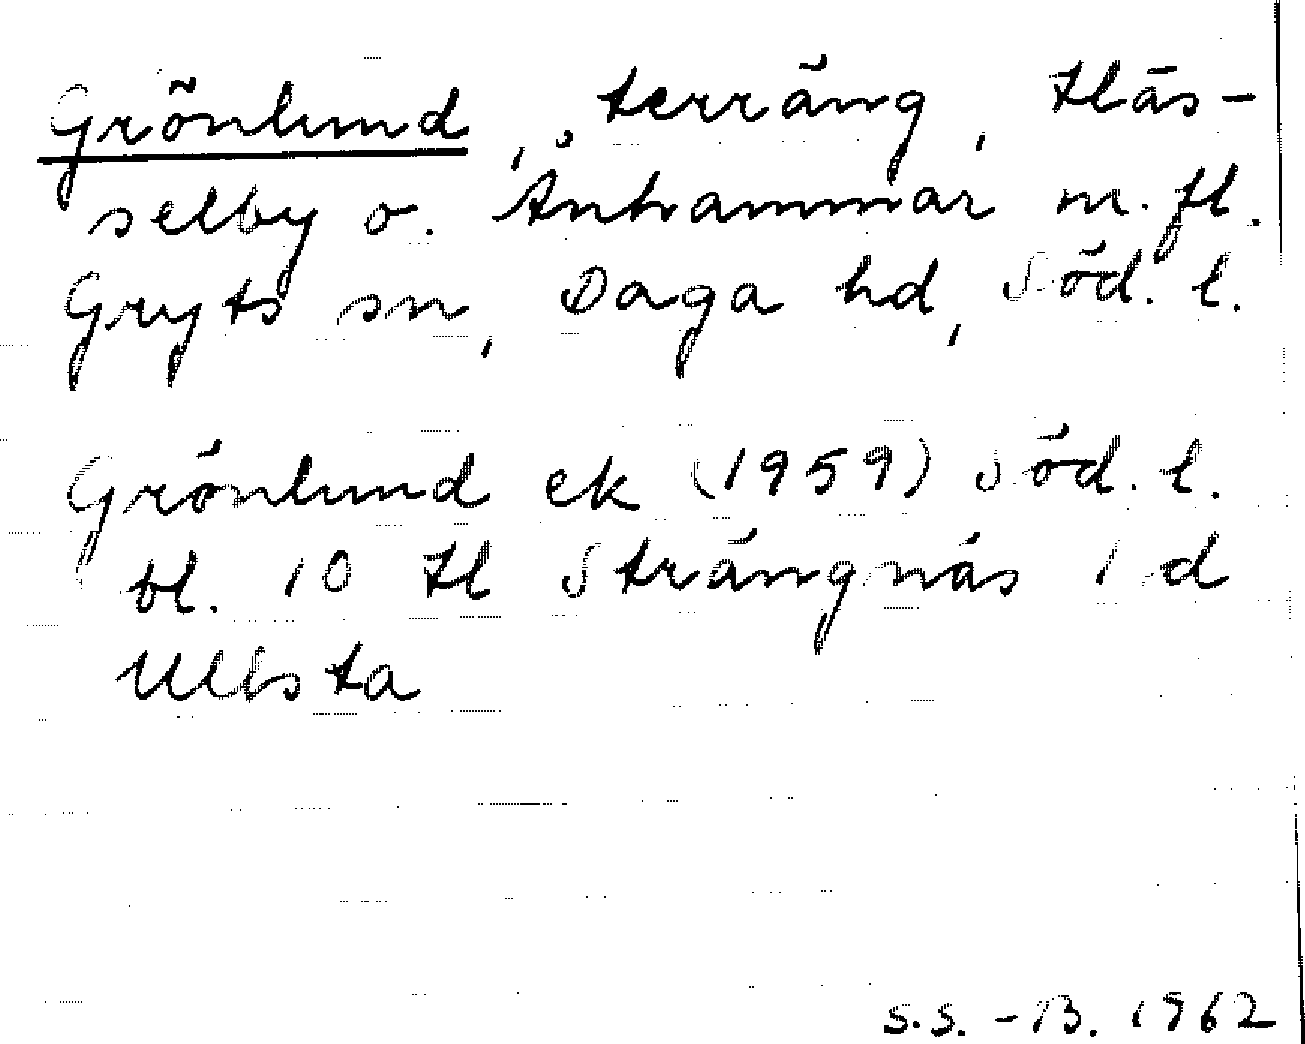 Grönlund, terräng, Häs-
selby o. Ånhammar m. fl.
Gryts sn, Daga hd, Söd. l.
Grönlund ek (1959) Söd. l.
bl. 10 Hl Strängnäs 1 d
Ullsta
S.S. - B. 1962